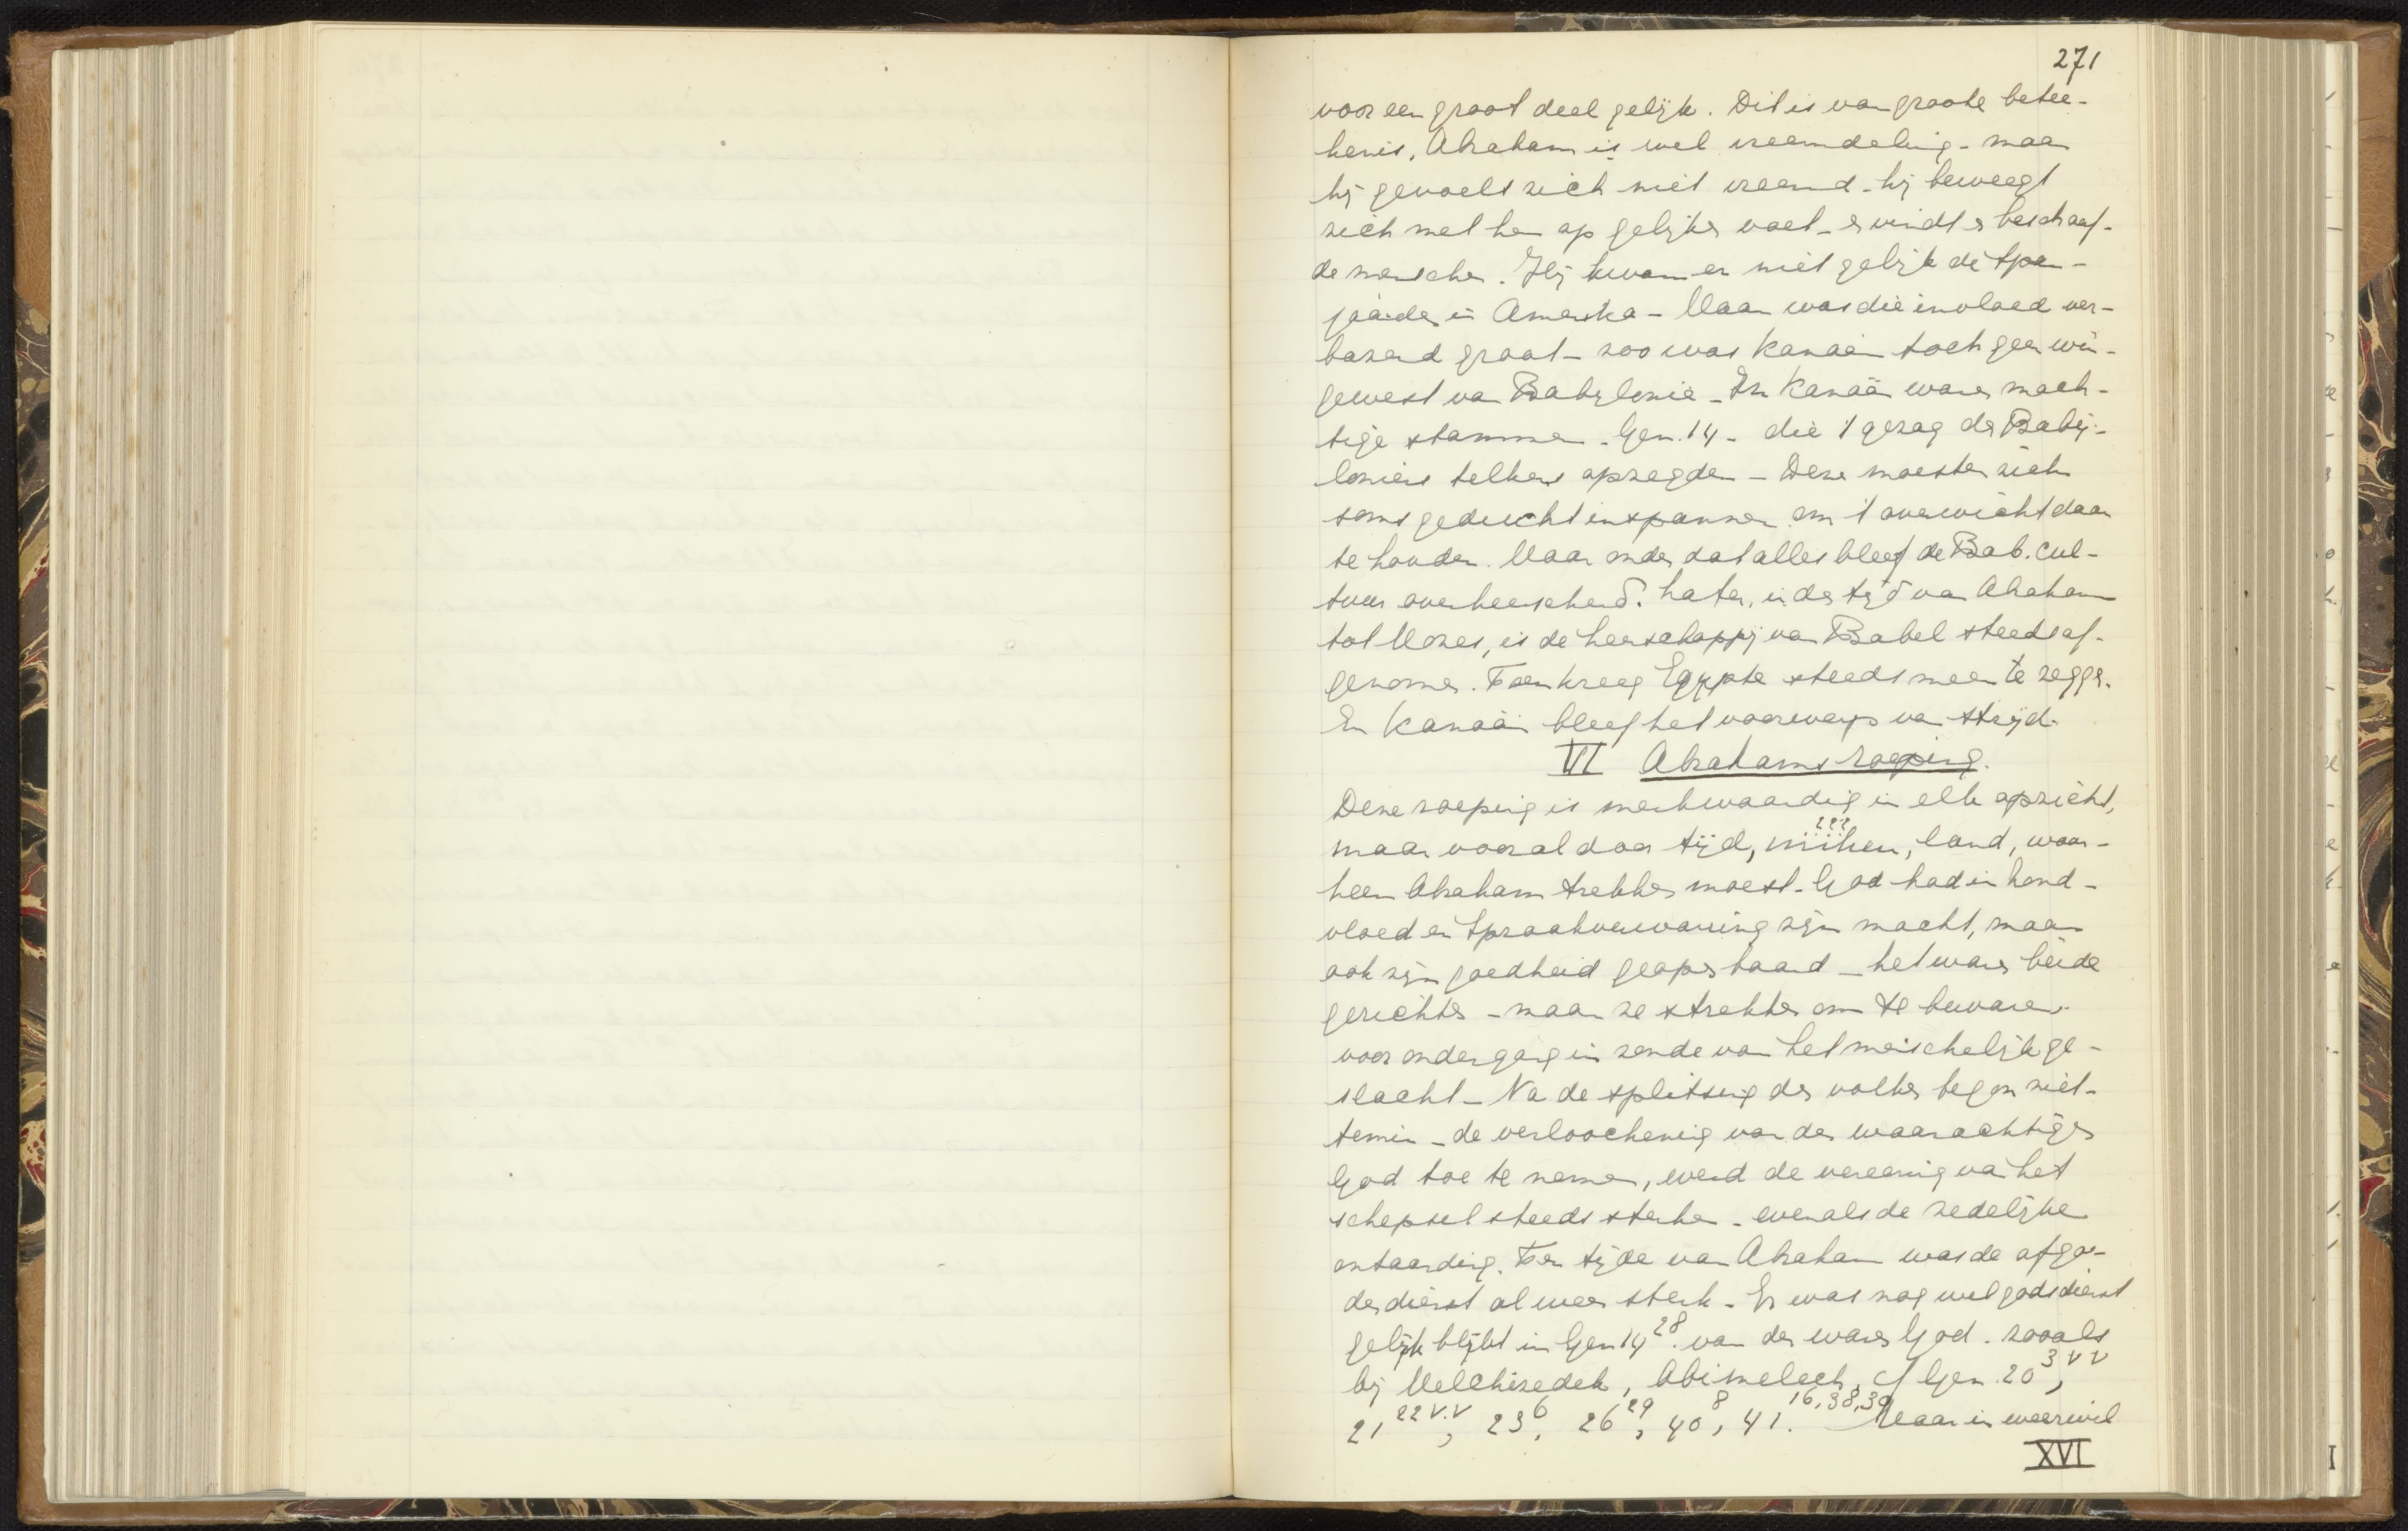 271
voor een groot deel gelijk. Dit is van groote betee-
kenis, Abraham is wel vreemdeling - maar
hij gevoelt zich niet vreemd - hij beweegt
zich met hen op gelijken voet - er vindt er beschaaf-
de menschen. Hij kwam er niet gelijk de Span-
jaarden in Amerika - Maar was die invloed ver-
bazend groot - zoo was Kanaän toch geen win-
gewest van Babylonie - In Kanaän waren mach-
tige stammen - Gen. 14 - die 't gezag der Baby-
loniers telkens opzegden - Deze moesten zich
soms geducht inspannen om 't overwicht daar
te houden. Maar onder dat alles bleef de Bab. cul-
tuur overheerschend. Later, in den tijd van Abraham
tot Mozes, is de heerschappij van Babel steeds af-
genomen. Toen kreeg Egypte steeds meer te zeggen.
En Kanaän bleef het voorwerp van strijd.
VI Abrahams roeping.
Deze roeping is merkwaardig in elk opzicht,
maar vooral door tijd, land, waar-
heen Abraham trekken moest. God had in hond-
vloed en Spraakverwarring zijn macht, maar
ook zijn goedheid geopenbaard - het waren beide
gerichten - maar ze strekten om te bewaren
voor ondergang in zonde van het menschelijk ge-
slacht - Na de splitsing der volken begon niet-
temin - de verloochening van den waarachtigen
God toe te nemen, werd de vereering van het
schepsel steeds sterker - evenals de zedelijke
ontaarding. Ten tijde van Abraham was de afgo-
dendienst al weer sterk - Er was nog wel godsdienst
gelijk blijkt in Gen 14 28 van den waren God. zooals
bij Melchizedek, Abimelech, cf Gen. 20 3 v v,
21 22 v.v, 23 6, 26 29, 40 8, 41. 16, 38, 39 Maar in weerwil
XVI